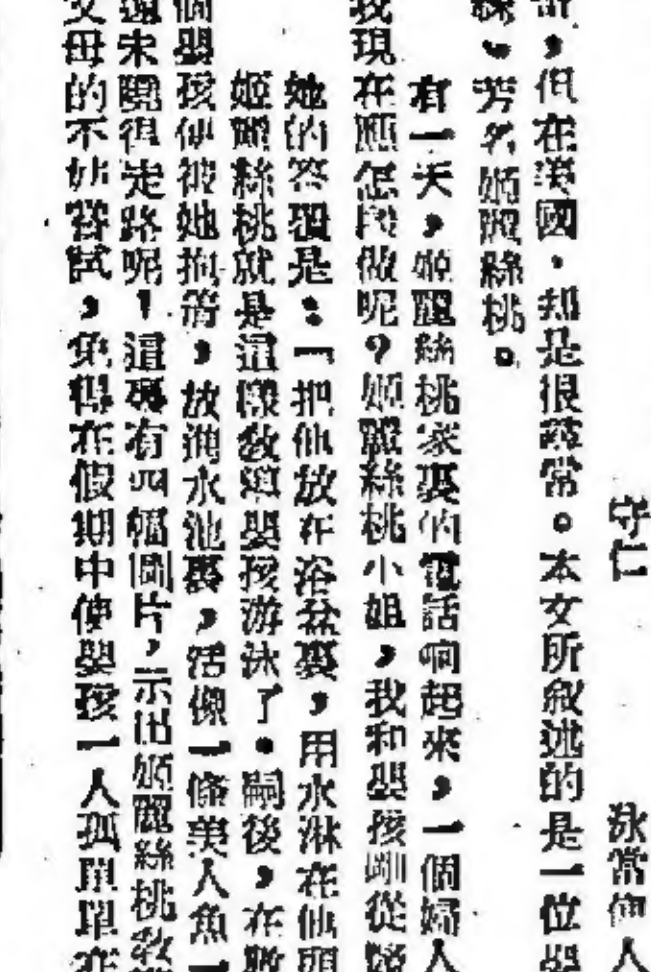 守仁 泳常仰人
許,但在美國,却是很尋常。本文所敘述的是一位嬰
練,芳名姬麗絲桃。
有一天,姬麗絲桃家裏的電話响起來,一個婦人
我現在應怎樣做呢?姬麗絲桃小姐,我和嬰孩剛從醫
她的答覆是:「把他放在浴盆裏,用水淋在他頭
姬麗絲桃就是這樣教導嬰孩游泳了。嗣後,在數
個嬰孩便被她抱着,放進水池裏,活像一條美人魚一
還未曉得走路呢!這裏有四幅圖片,示出姬麗絲桃教
父母的不妨嘗試,免得在假期中使嬰孩一人孤單單在